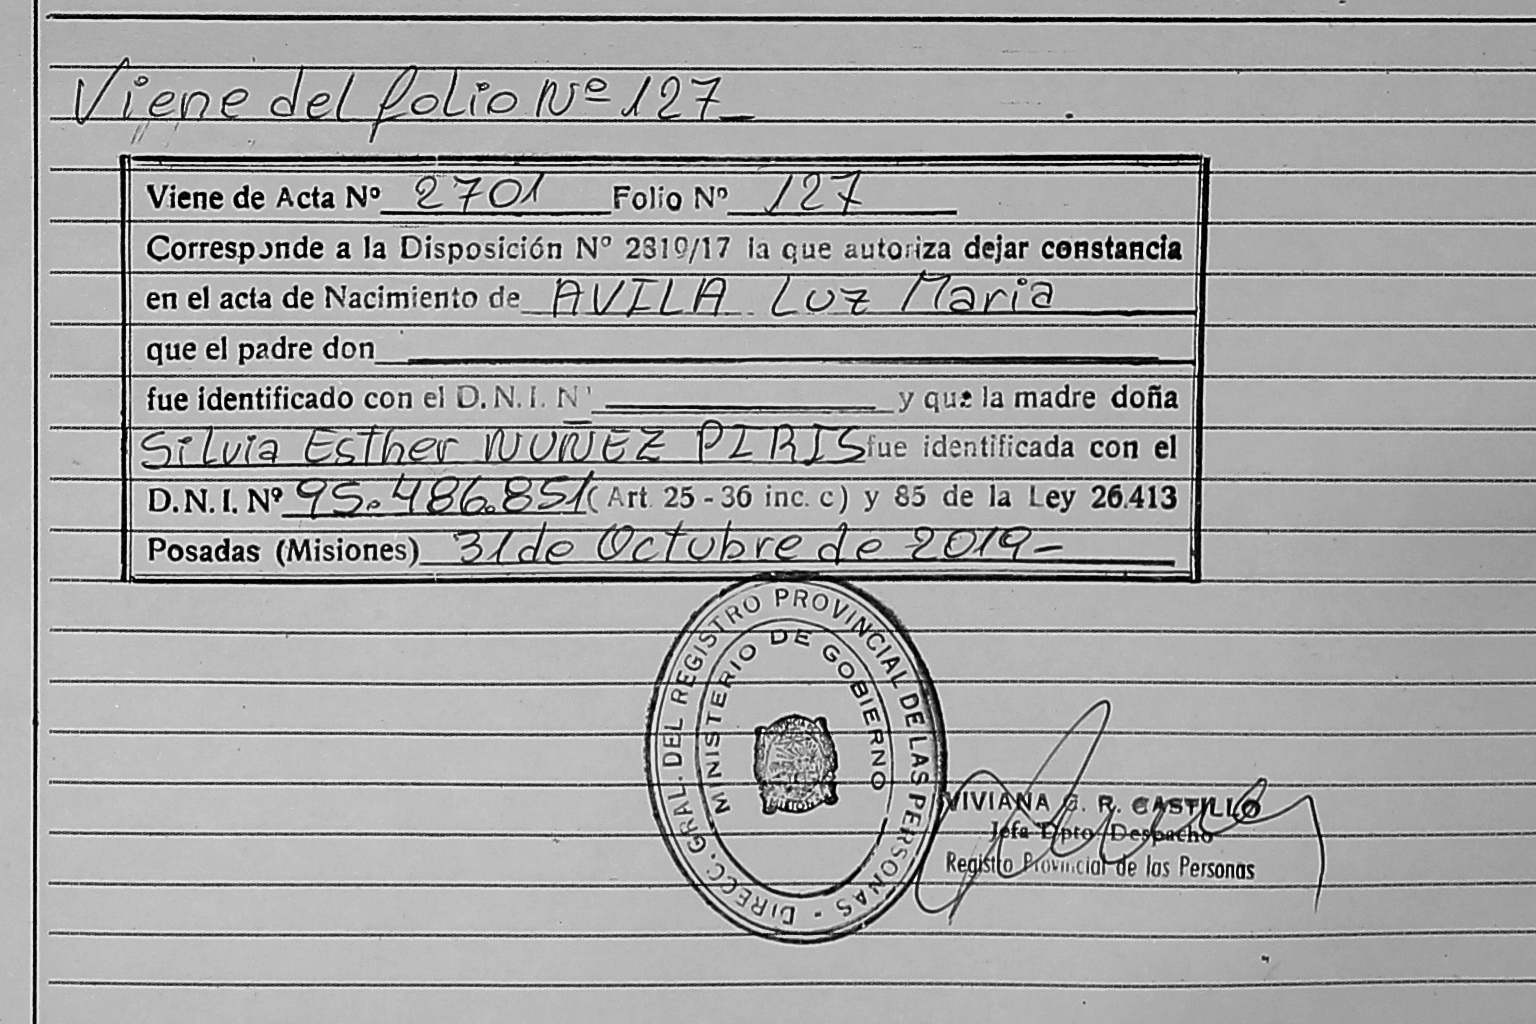 Viene del folio Nº 127
Viene de Acta Nº 2701 Folio Nº 127
Corresponde a la Disposición Nº 2819/17 la que autoriza dejar constancia
en el acta de Nacimiento de AVILA Luz Maria
que el padre don
fue identificado con el D.N.I. Nº y que la madre doña
Silvia Esther NUÑEZ PIRIS fue identificada con el
D.N.I. Nº 95.486.851 (Art. 25 - 36 inc. c) y 85 de la Ley 26.413
Posadas (Misiones) 31 de Octubre de 2019-
DIRECC. GRAL. DEL REGISTRO PROVINCIAL DE LAS PERSONAS -
MINISTERIO DE GOBIERNO
MISIONES
VIVIANA G. R. CASTILLO
Jefa Dpto Despacho
Registro Provincial de las Personas